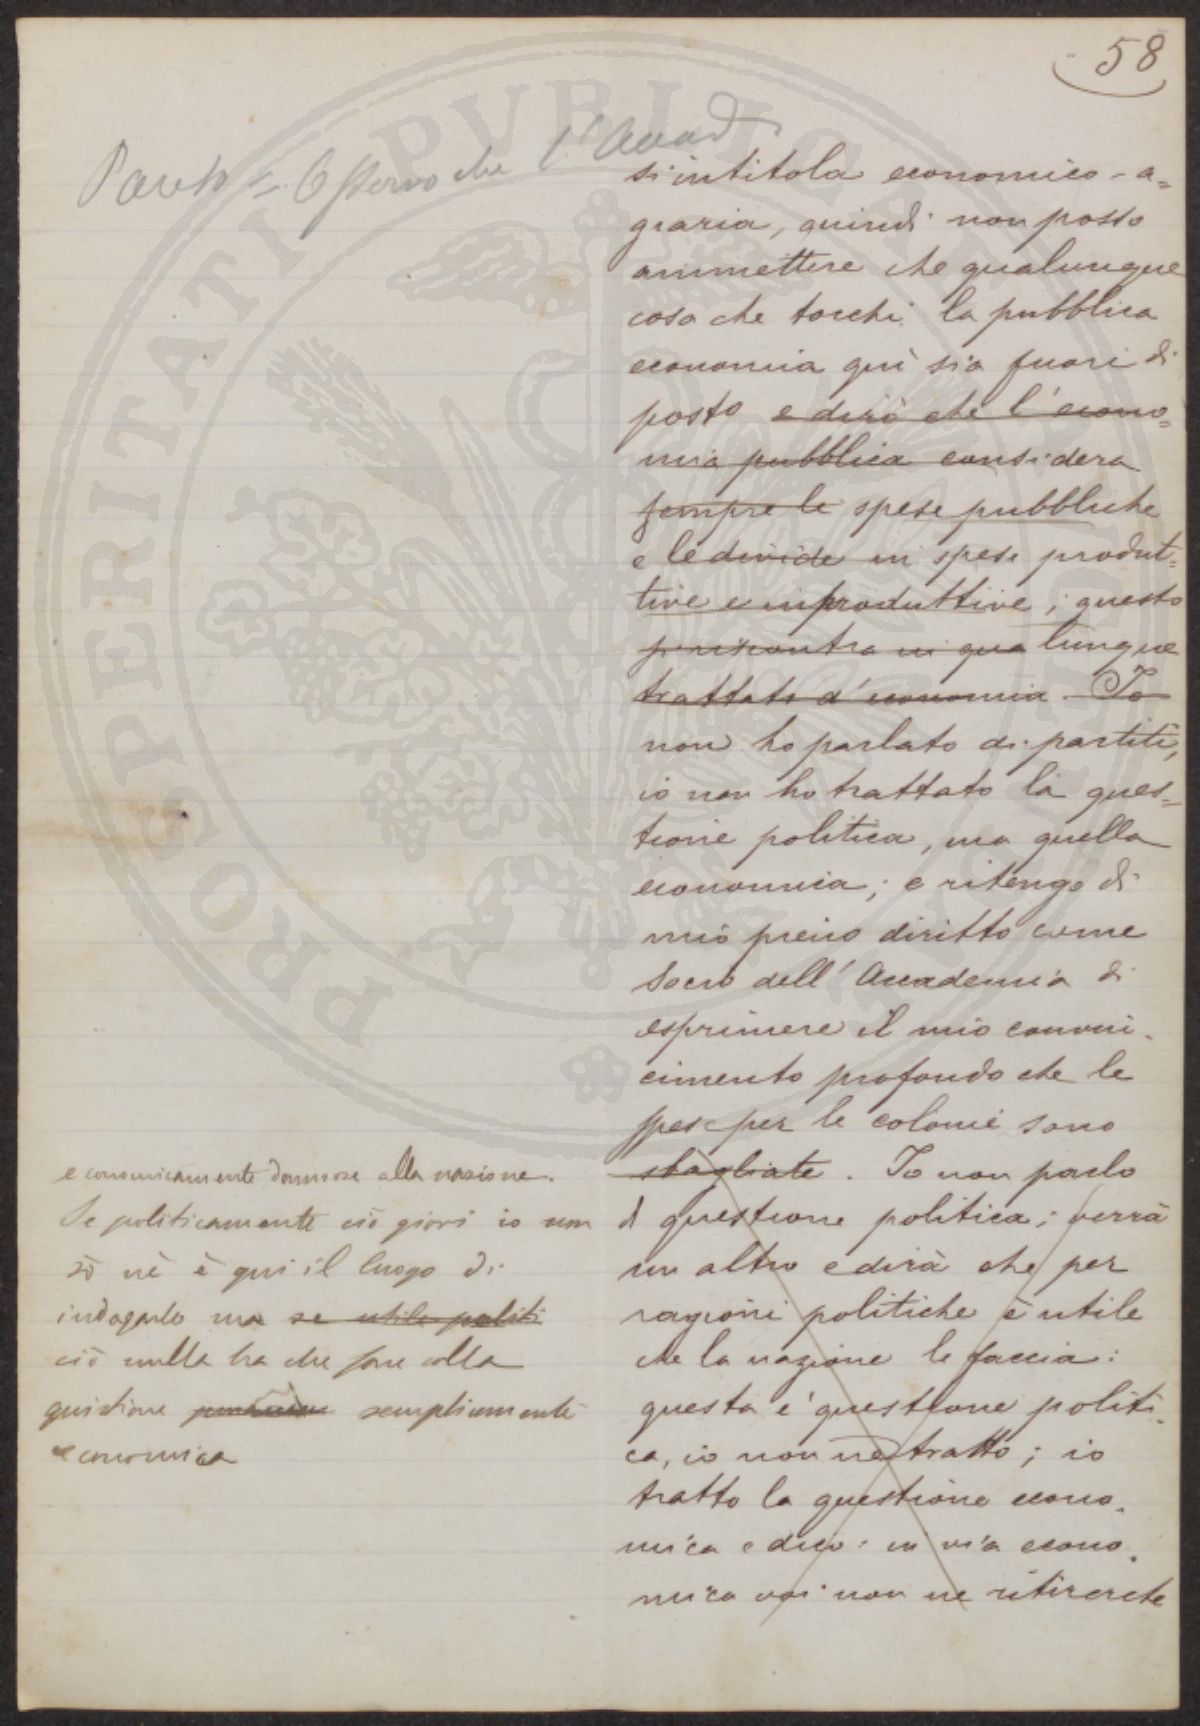 58
Pareto = Osservo che l'Accad
si intitola economico-a=
graria, quindi non posso
ammettere che qualunque
cosa che tocchi la pubblica
economia quì sia fuori di
posto e dirò che l'econo=
mia pubblica considera
sempre le spese pubbliche
e le divide in spese produt=
tive e improduttive; questo
si riscontra in qualunque
trattato d'economia. Io
non ho parlato di partiti,
io non ho trattato la ques=
tione politica, ma quella
economica; e ritengo di
mio pieno diritto come
Socio dell'Accademia di
esprimere il mio convin.
cimento profondo che le
spese per le colonie sono
sbagliate. Io non parlo
di questione politica; verrà
un altro e dirà che per
ragioni politiche è utile
che la nazione le faccia:
questa è questione politi.
ca, io non ne tratto; io
tratto la questione econo.
mica e dico: in via econo.
mica voi non ne ritirerete
economicamente dannose alla nazione.
Se politicamente ciò giovi io non
sò nè è qui il luogo di
indagarlo ma se utile politi
ciò nulla ha che fare colla
quistione semplicemente
economica
PROSPERITATI PUBLICAE